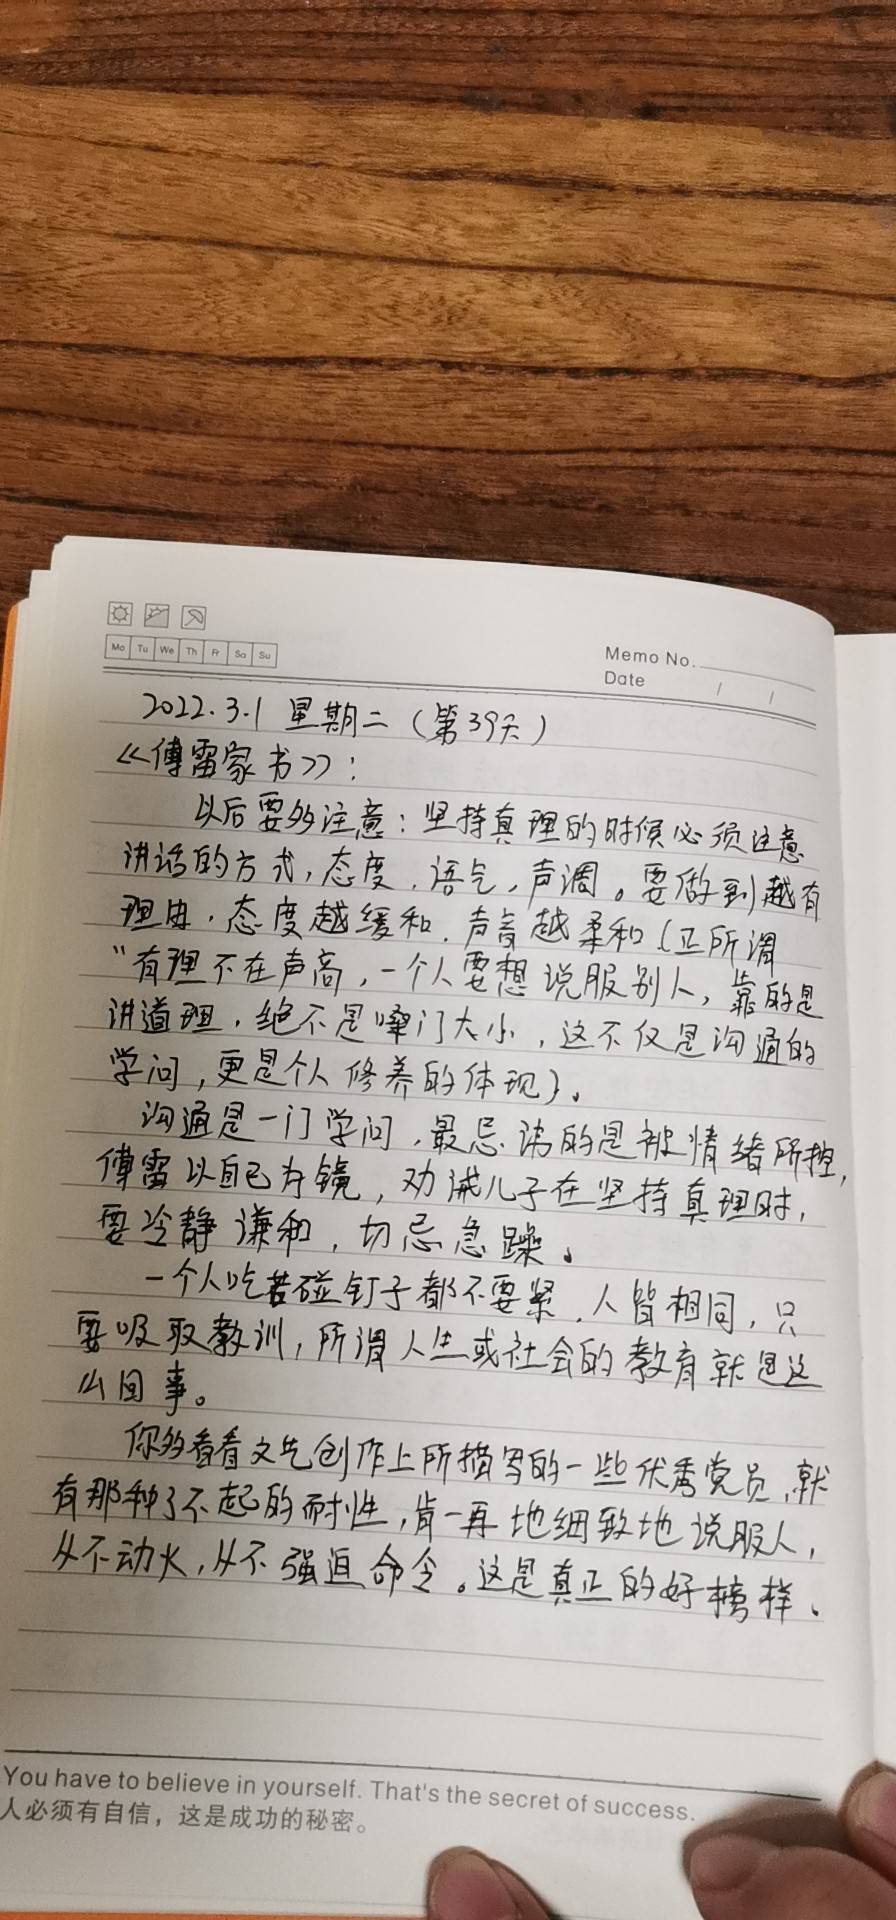 Mo Tu We Th Fr Sa Su
Memo No.
Date / /
2022.3.1 星期二（第39天）
《傅雷家书》：
以后要多注意：坚持真理的时候必须注意
讲话的方式，态度，语气，声调。要做到越有
理由，态度越缓和，声音越柔和（正所谓
“有理不在声高，一个人要想说服别人，靠的是
讲道理，绝不是嗓门大小，这不仅是沟通的
学问，更是个人修养的体现）。
沟通是一门学问，最忌讳的是被情绪所控，
傅雷以自己为镜，劝诫儿子在坚持真理时，
要冷静谦和，切忌急躁。
一个人吃苦碰钉子都不要紧，人皆相同，只
要吸取教训，所谓人生或社会的教育就是这
么回事。
你多看看文艺创作上所描写的一些优秀党员，就
有那种了不起的耐性，肯一再地细致地说服人，
从不动火，从不强迫命令。这是真正的好榜样。
You have to believe in yourself. That's the secret of success.
人必须有自信，这是成功的秘密。